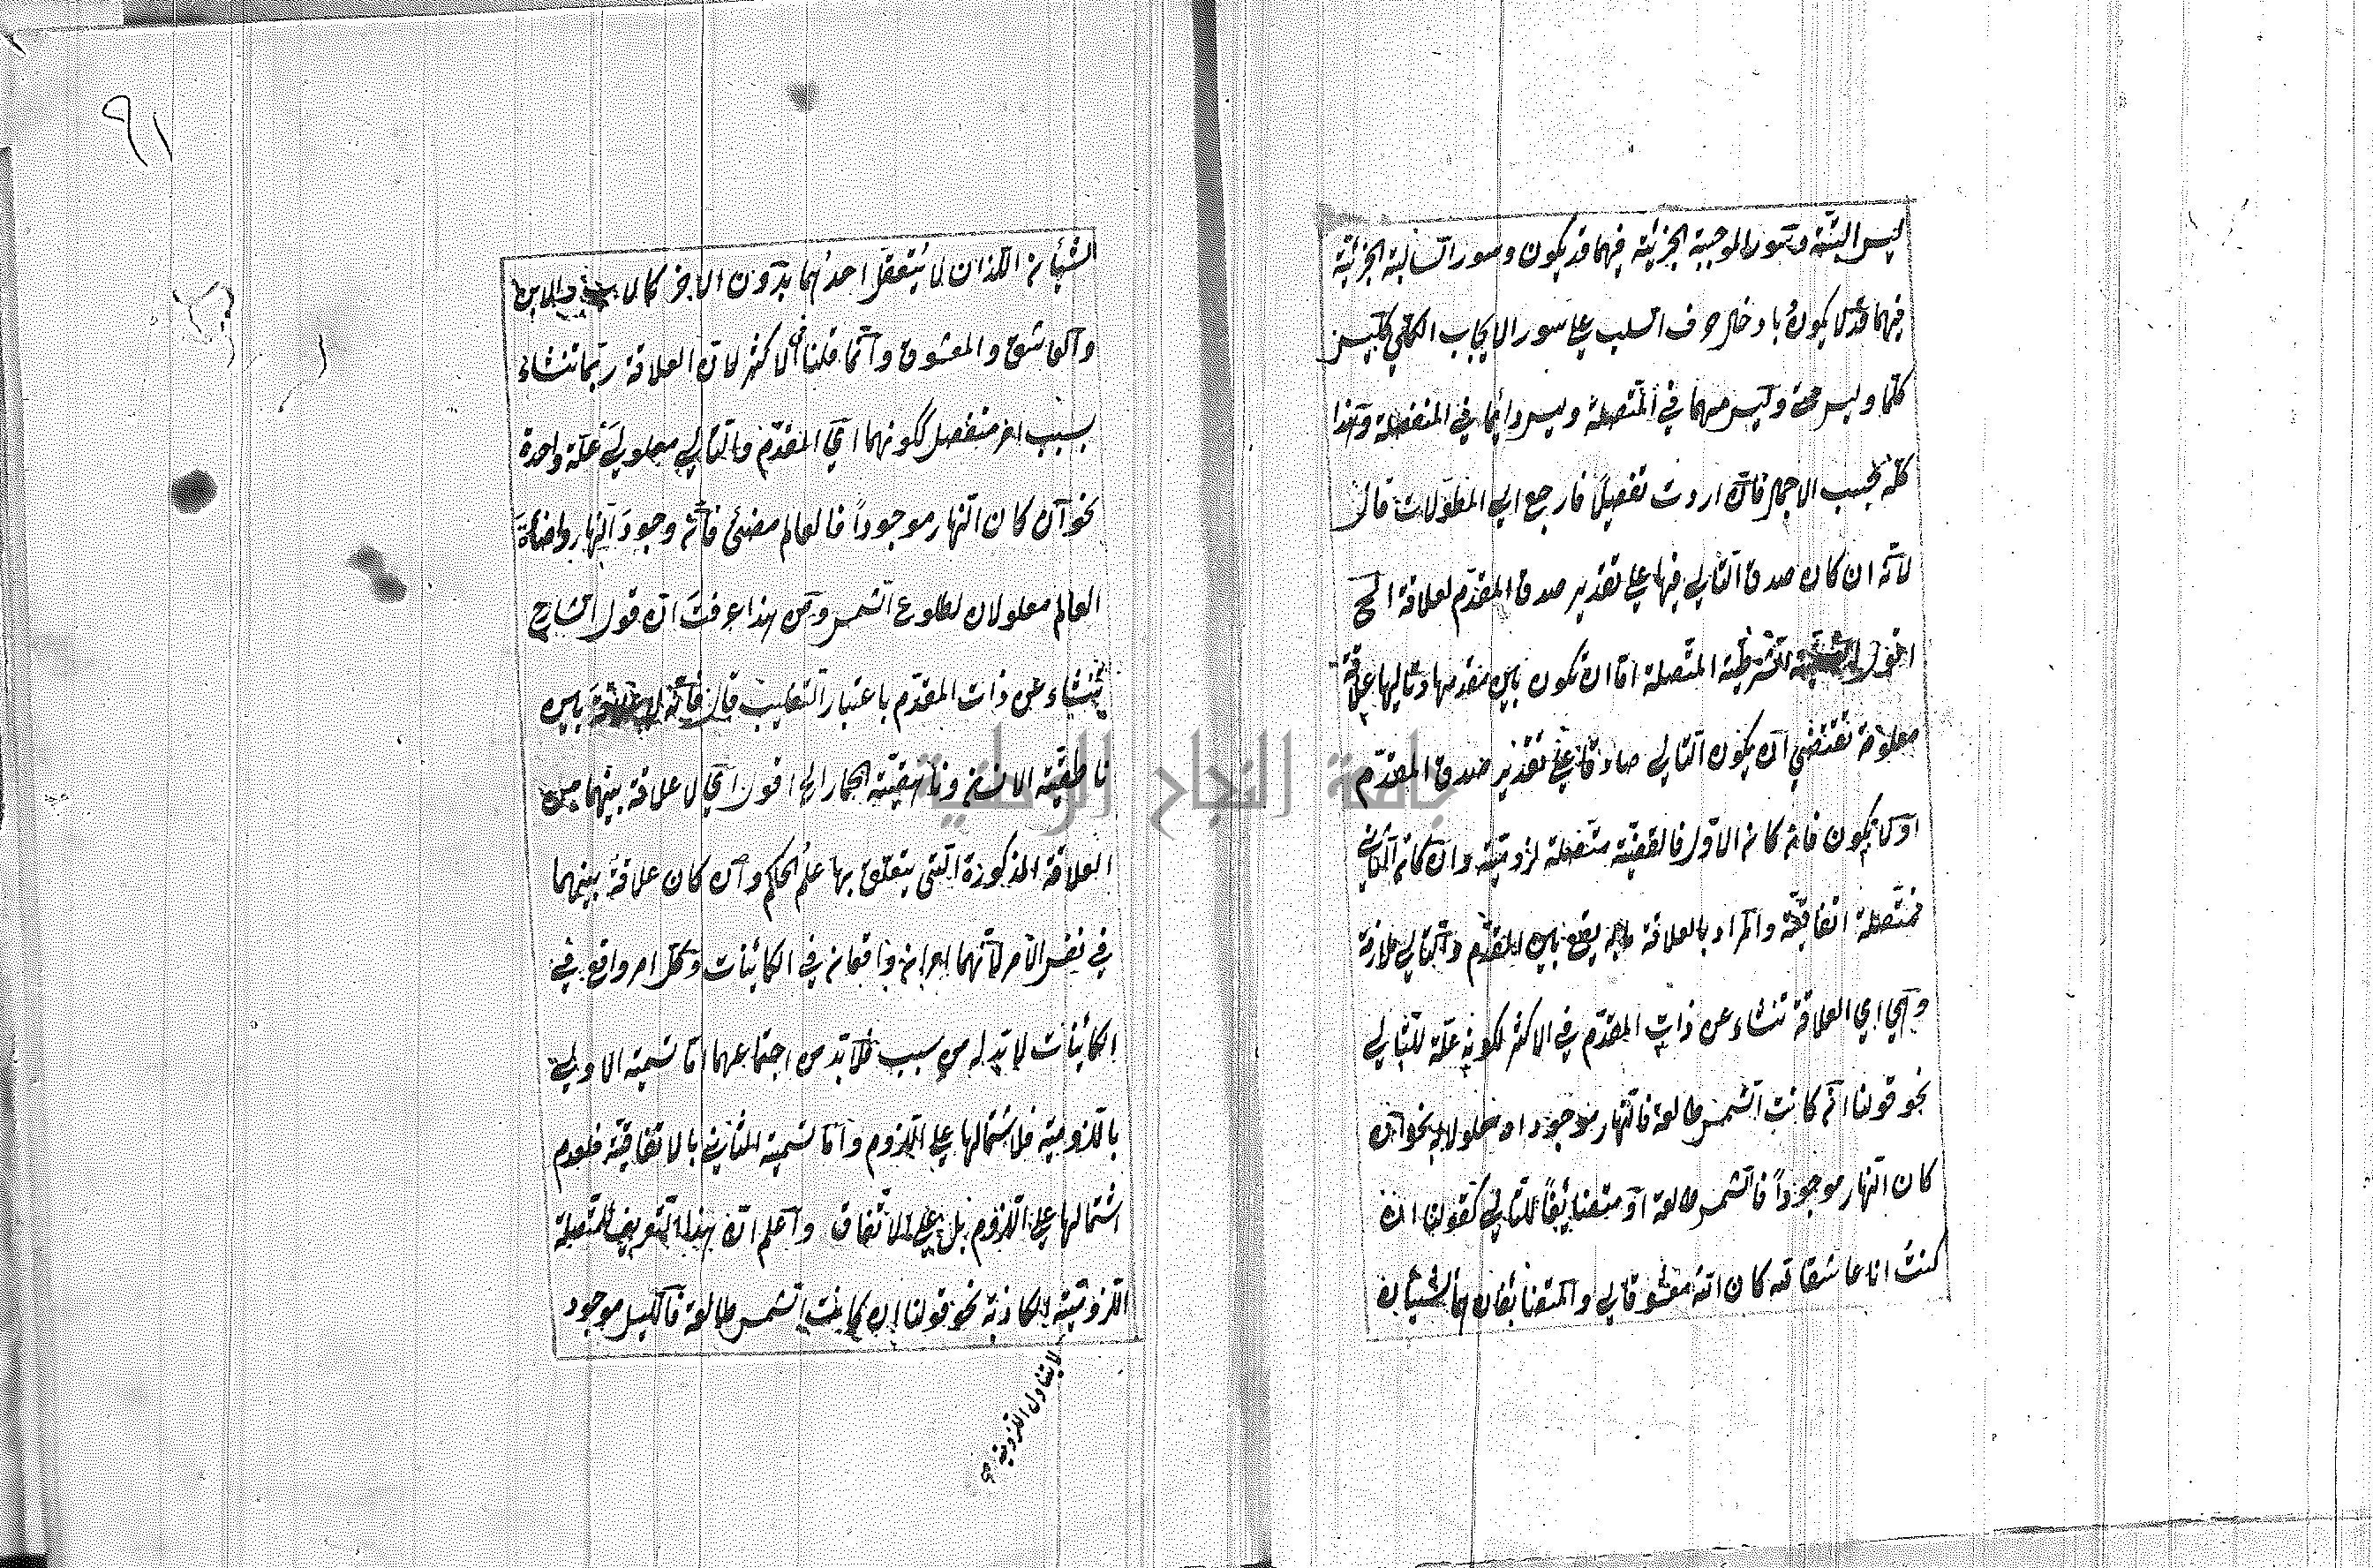 ليس البتة وسور الموجبة الجزئية فيهما قد يكون وسور السالبة الجزئية
فيهما قد لا يكون بادخال حرف السلب على سور الايجاب الكلي كليس
كلما وليس متى وليس مهما في المتصلة وليس دائما في المنفصلة وهذا
كله بحسب الاجمال فان اردت تفصيلا فارجع الى المطولات قال
لانه ان كان صدق التالي فيها على تقدير صدق المقدم لعلاقة الخ
اقول الشرطية المتصلة اما ان تكون بين مقدمها وتاليها علاقة
معلومة تقتضي ان يكون التالي صادقا على تقدير صدق المقدم
او لا يكون فان كان الاول فالقضية متصلة لزومية وان كان الثاني
فمتصلة اتفاقية والمراد بالعلاقة ما به يقع بين المقدم والتالي ملازمة
وهي اي العلاقة تنشاء عن ذات المقدم في الاكثر لكونه علة للتالي
نحو قولنا ان كانت الشمس طالعة فالنهار موجود او معلولا له نحو ان
كان النهار موجودا فالشمس طالعة او متضايفا للتالي كقولنا ان
كنت انا عاشقا له كان انه معشوقا لي والمتضايفان هما الشيئان
٩١
الشيئان اللذان لا يتعقل احدهما بدون الاخر كالاب والابن
والعاشق والمعشوق وانما قلنا في الاكثر لان العلاقة ربما تنشاء
بسبب امر منفصل ككونهما اي المقدم والتالي معلولي علة واحدة
نحو ان كان النهار موجودا فالعالم مضئ فان وجود النهار واضاءة
العالم معلولان لطلوع الشمس ومن هذا عرفت ان قول الشارح
تنشاء عن ذات المقدم باعتبار التغليب قال فانه لا علاقة بين
ناطقية الانسان وناهقية الحمار الخ اقول اي لا علاقة بينهما من
العلاقة المذكورة التي يتعلق بها علم الحكم وان كان علاقة بينهما
في نفس الامر لانهما امران واقعان في الكائنات وكل امر واقع في
الكائنات لا بد له من سبب فلا بد من اجتماعهما اما تسمية الاولى
باللزومية فلاشتمالها على اللزوم واما تسمية الثاني بالاتفاقية فلعدم
اشتمالها على اللزوم بل على الاتفاق واعلم ان هذا التعريف للمتصلة
اللزومية الكاذبة نحو قولنا ان كانت الشمس طالعة فالليل موجود
لا يتناول اللزومية
جامعة النجاح الوطنية